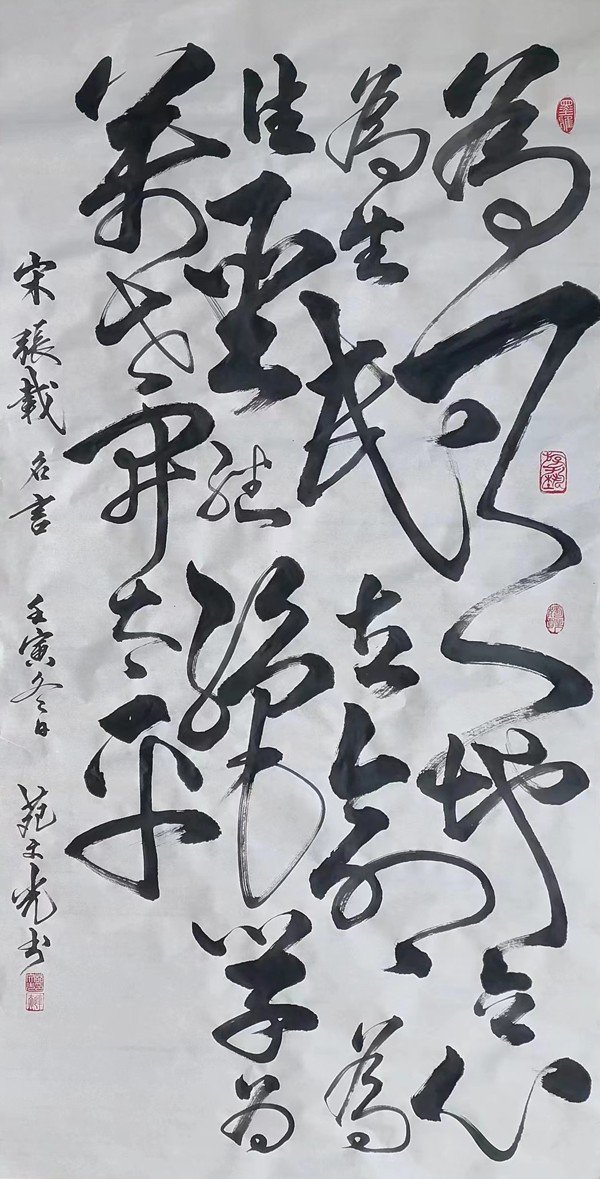 為天地立心
為生民立命為
往聖继絶學为
萬世開太平
宋張載名言 壬寅冬日 苑文光书